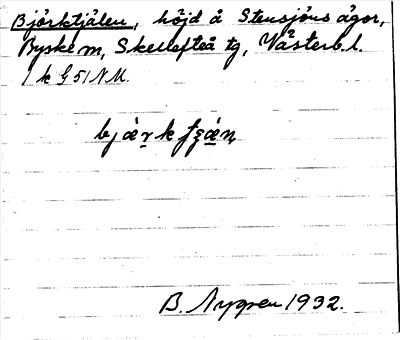 Björktjälen, höjd å Stensjöns ägor,
Byske m, Skellefteå tg, Västerb. l.
1 k G 51 N M.
bjæ̀rk
B. Nygren 1932.